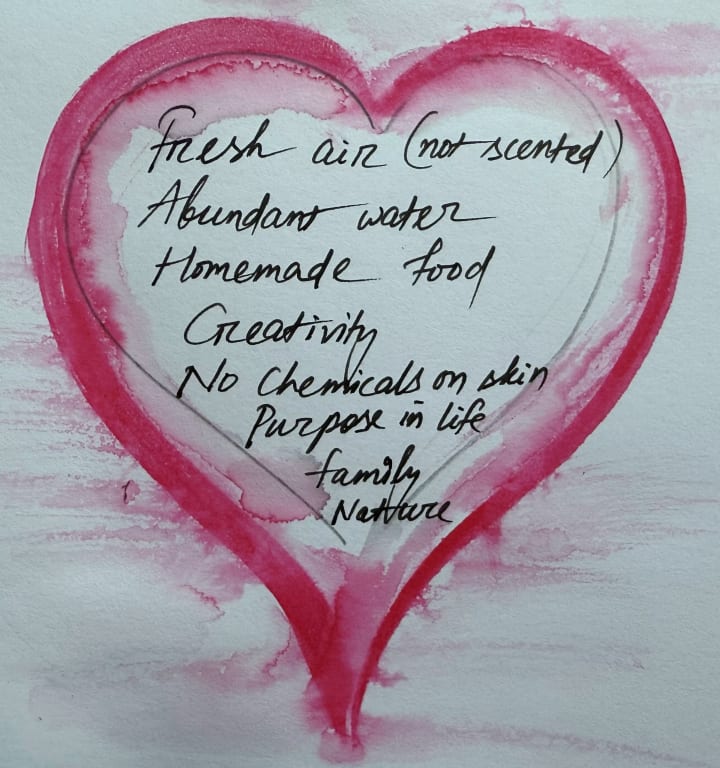 Fresh air (not scented)
Abundant water
Homemade food
Creativity
No Chemicals on skin
Purpose in life
family
Nature